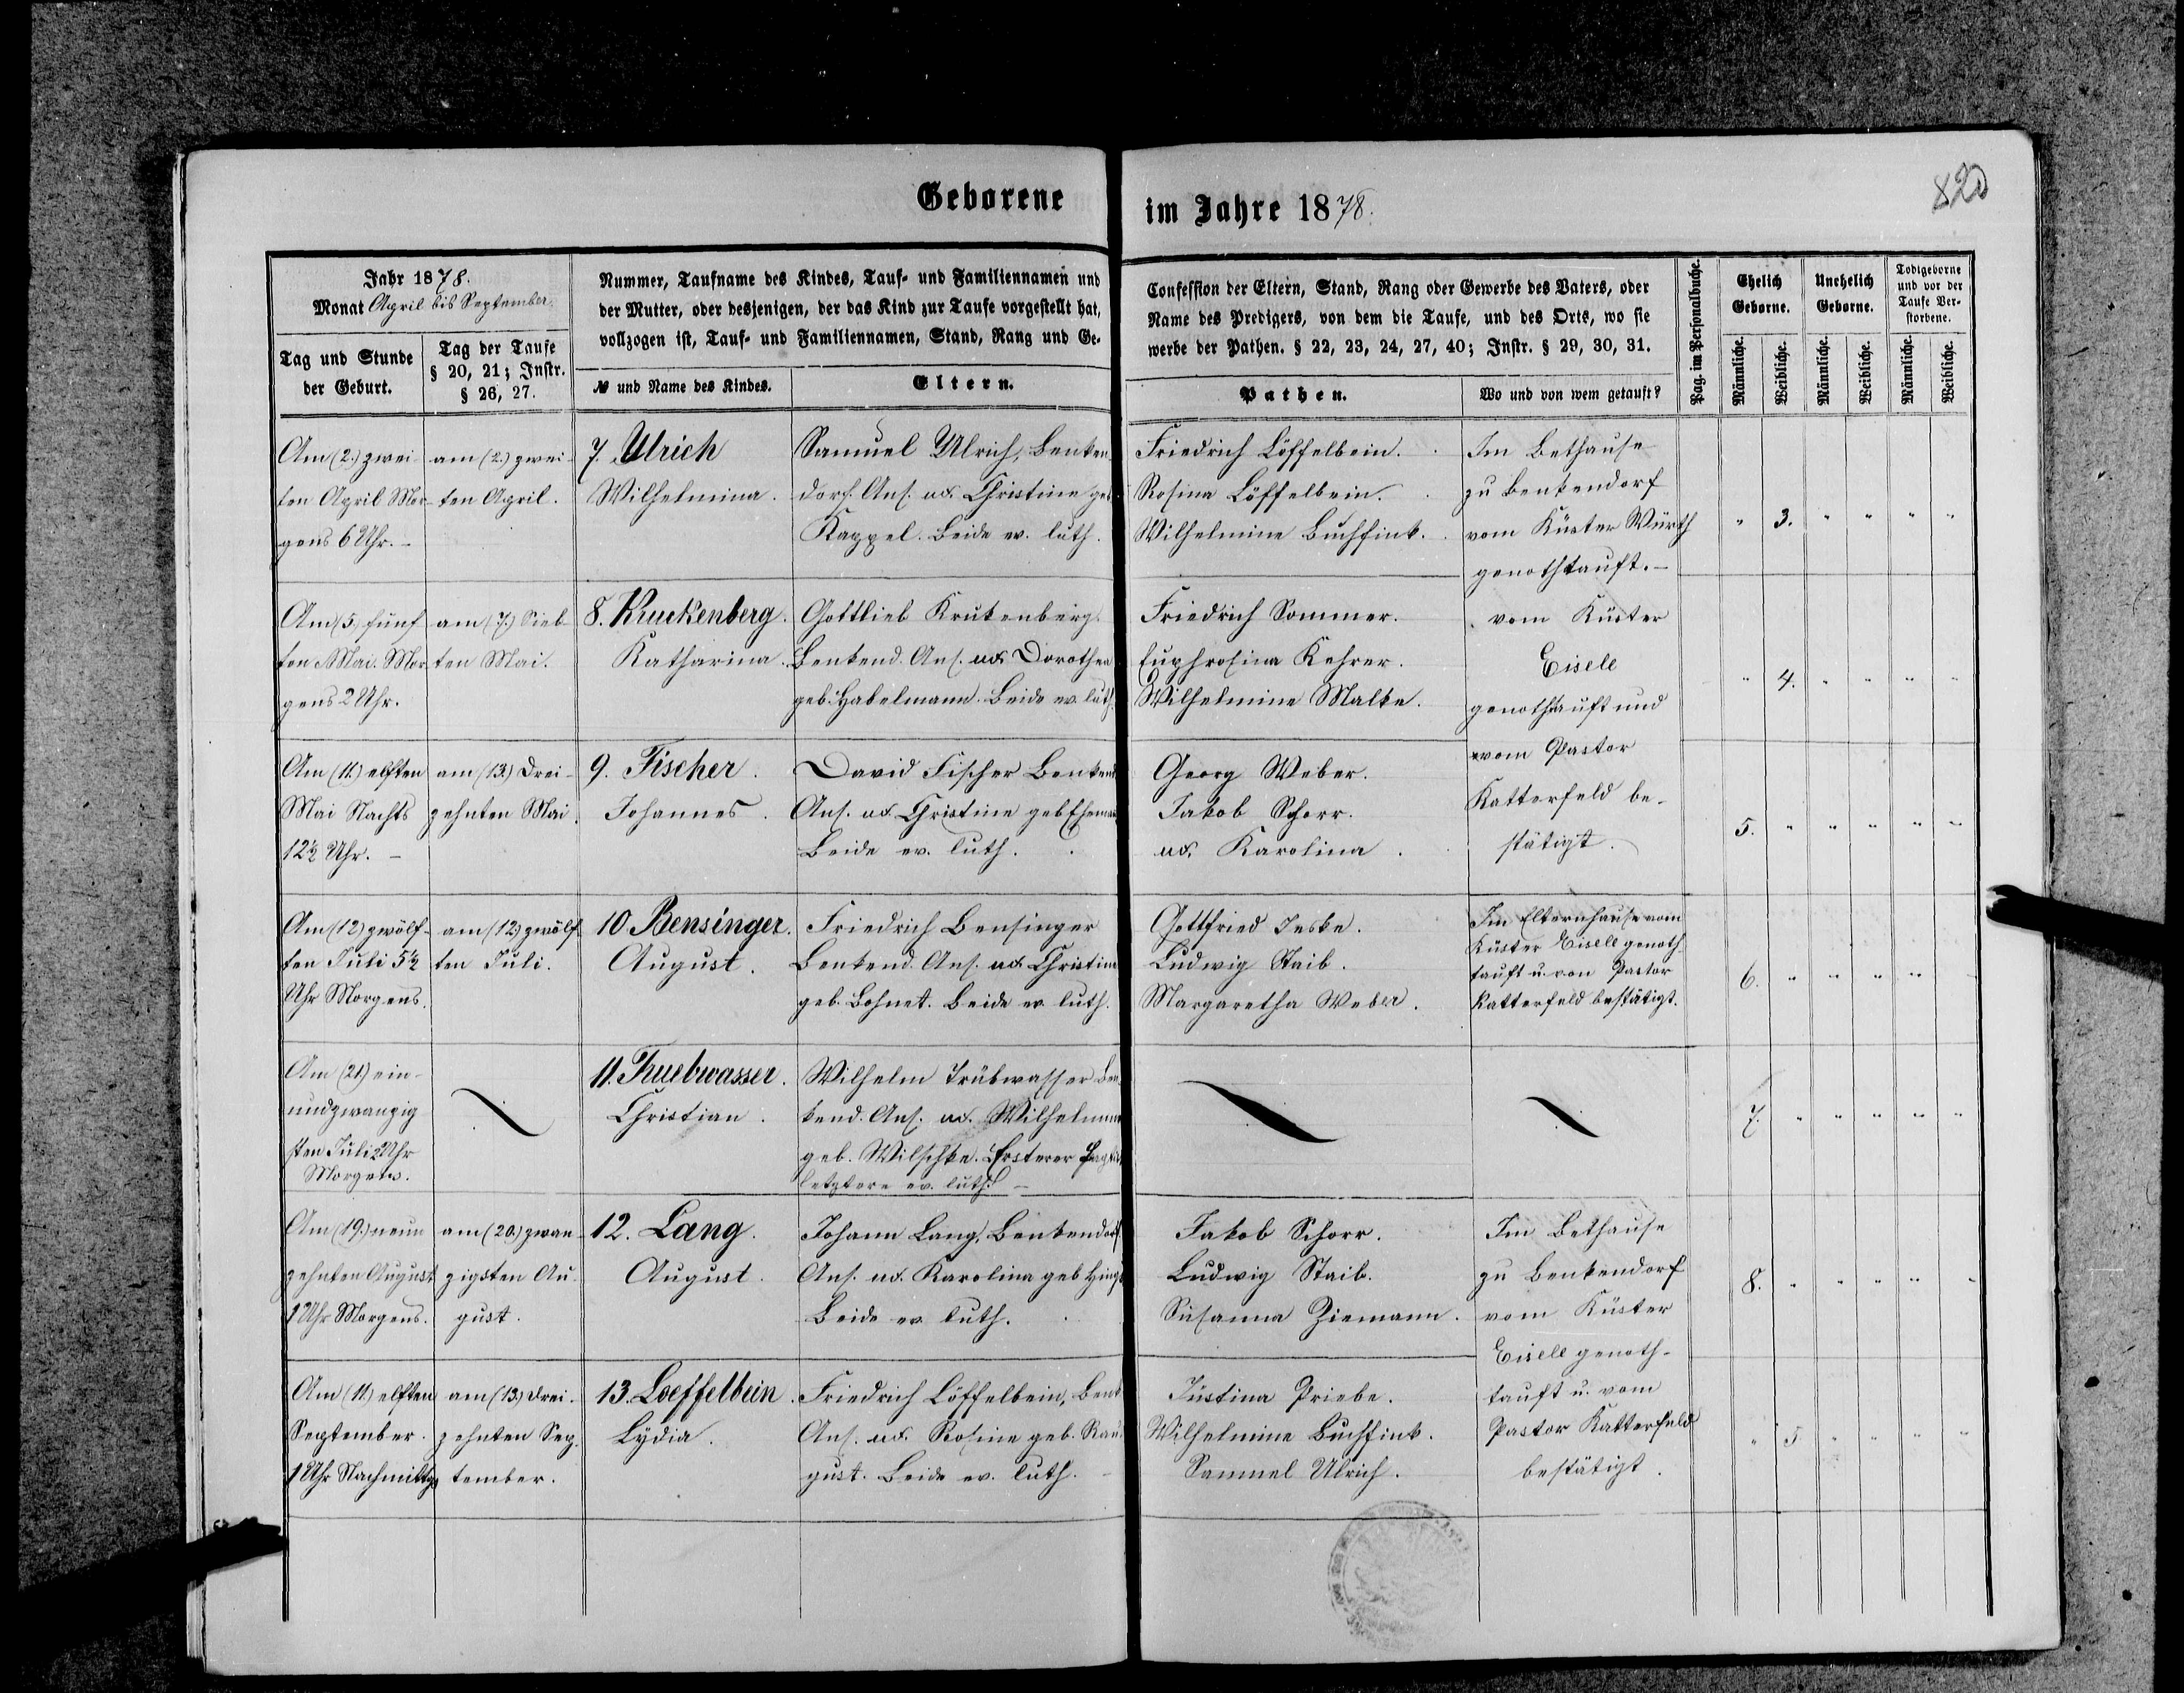 Geborene im Jahre 1878.
820
Jahr 1878.
Monat April bis September.
Tag und Stunde der Geburt.
Tag der Taufe § 20, 21; Instr. § 26, 27.
Nummer, Taufname des Kindes, Tauf- und Familiennamen und
der Mutter, oder desjenigen, der das Kind zur Taufe vorgestellt hat,
vollzogen ist, Tauf- und Familiennamen, Stand, Rang und Ge-
№ und Name des Kindes.
Eltern.
Confession der Eltern, Stand, Rang oder Gewerbe des Vaters, oder
Name des Predigers, von dem die Taufe, und des Orts, wo sie
werbe der Pathen. § 22, 23, 24, 27, 40; Instr. § 29, 30, 31.
Pathen.
Wo und von wem getauft?
Pag. im Personalbuche.
Ehelich Geborne.
Unehelich Geborne.
Todtgeborne und vor der Taufe Verstorbene.
Männliche. Weibliche. Männliche. Weibliche. Männliche. Weibliche.
Am (2.) zwei-
ten April Mor-
gens 6 Uhr. –
am (2.) zwei-
ten April.
7. Ulrich
Wilhelmina.
Samuel Ulrich, Benken-
dorf. Ans. ux. Christine geb.
Kappel. Beide ev. luth.
Friedrich Löffelbein.
Rosina Löffelbein.
Wilhelmine Buchfink.
Im Bethause
zu Benkendorf
vom Küster Würth
genothtauft. –
" 3. " " " "
Am (5.) fünf
ten Mai. Mor-
gens 2 Uhr.
am (7.) Sieb-
ten Mai.
8. Kruckenberg.
Katharina.
Gottlieb Krukenberg.
Benkend. Ans. ux. Dorothea
geb. Habelmann. Beide ev. luth.
Friedrich Sommer.
Euphrosina Kehrer.
Wilhelmine Malke.
vom Küster
Eisele
genothtauft und
vom Pastor
Katterfeld be-
stätigt.
" 4. " " " "
Am (11.) elften
Mai Nachts
12½ Uhr. –
am (13.) drei-
zehnten Mai.
9. Fischer.
Johannes.
David Fischer Benkend
Ans. ux. Christine geb.
Beide ev. luth.
Georg Weber.
Jakob Schorr.
ux. Karolina.
5. " " " " "
Am (12) zwölf-
ten Juli 5½
Uhr Morgens.
am (12) zwölf-
ten Juli.
10. Bensinger.
August.
Friedrich Bensinger
Benkend. Ans. ux. Christine
geb. Bohnet. Beide ev. luth.
Gottfried Jeske.
Ludwig Staib.
Margaretha Weber.
Im Elternhause vom
Küster Eisele genoth-
tauft u. von Pastor
Katterfeld bestätigt.
6. " " " " "
Am (21.) ein-
undzwanzig
sten Juli 2 Uhr
Morgens.
11. Truebwasser.
Christian.
Wilhelm Trübwasser Ben-
kend. Ans. ux. Wilhelmine
geb. Wilschke. Ersterer
letztere ev. luth. –
7. " " " " "
Am (19.) neun
zehnten August
1 Uhr Morgens.
am (20.) zwan-
zigsten Au-
gust.
12. Lang.
August.
Johann Lang, Benkendorf
Ans. ux. Karolina geb.
Beide ev. luth.
Jakob Schorr.
Ludwig Staib.
Susanna Ziemann.
Im Bethause
zu Benkendorf
vom Küster
Eisele genoth-
tauft u. vom
Pastor Katterfeld
bestätigt.
8. " " " " "
Am (11.) elften
September.
1 Uhr Nachmittgs
am (13.) drei-
zehnten Sep-
tember.
13. Loeffelbein.
Lydia.
Friedrich Löffelbein, Benk
Ans. ux. Rosine geb. Rau-
gust. Beide ev. luth. –
Justina Priebe.
Wilhelmine Buchfink.
Samuel Ulrich.
" 5. " " " "